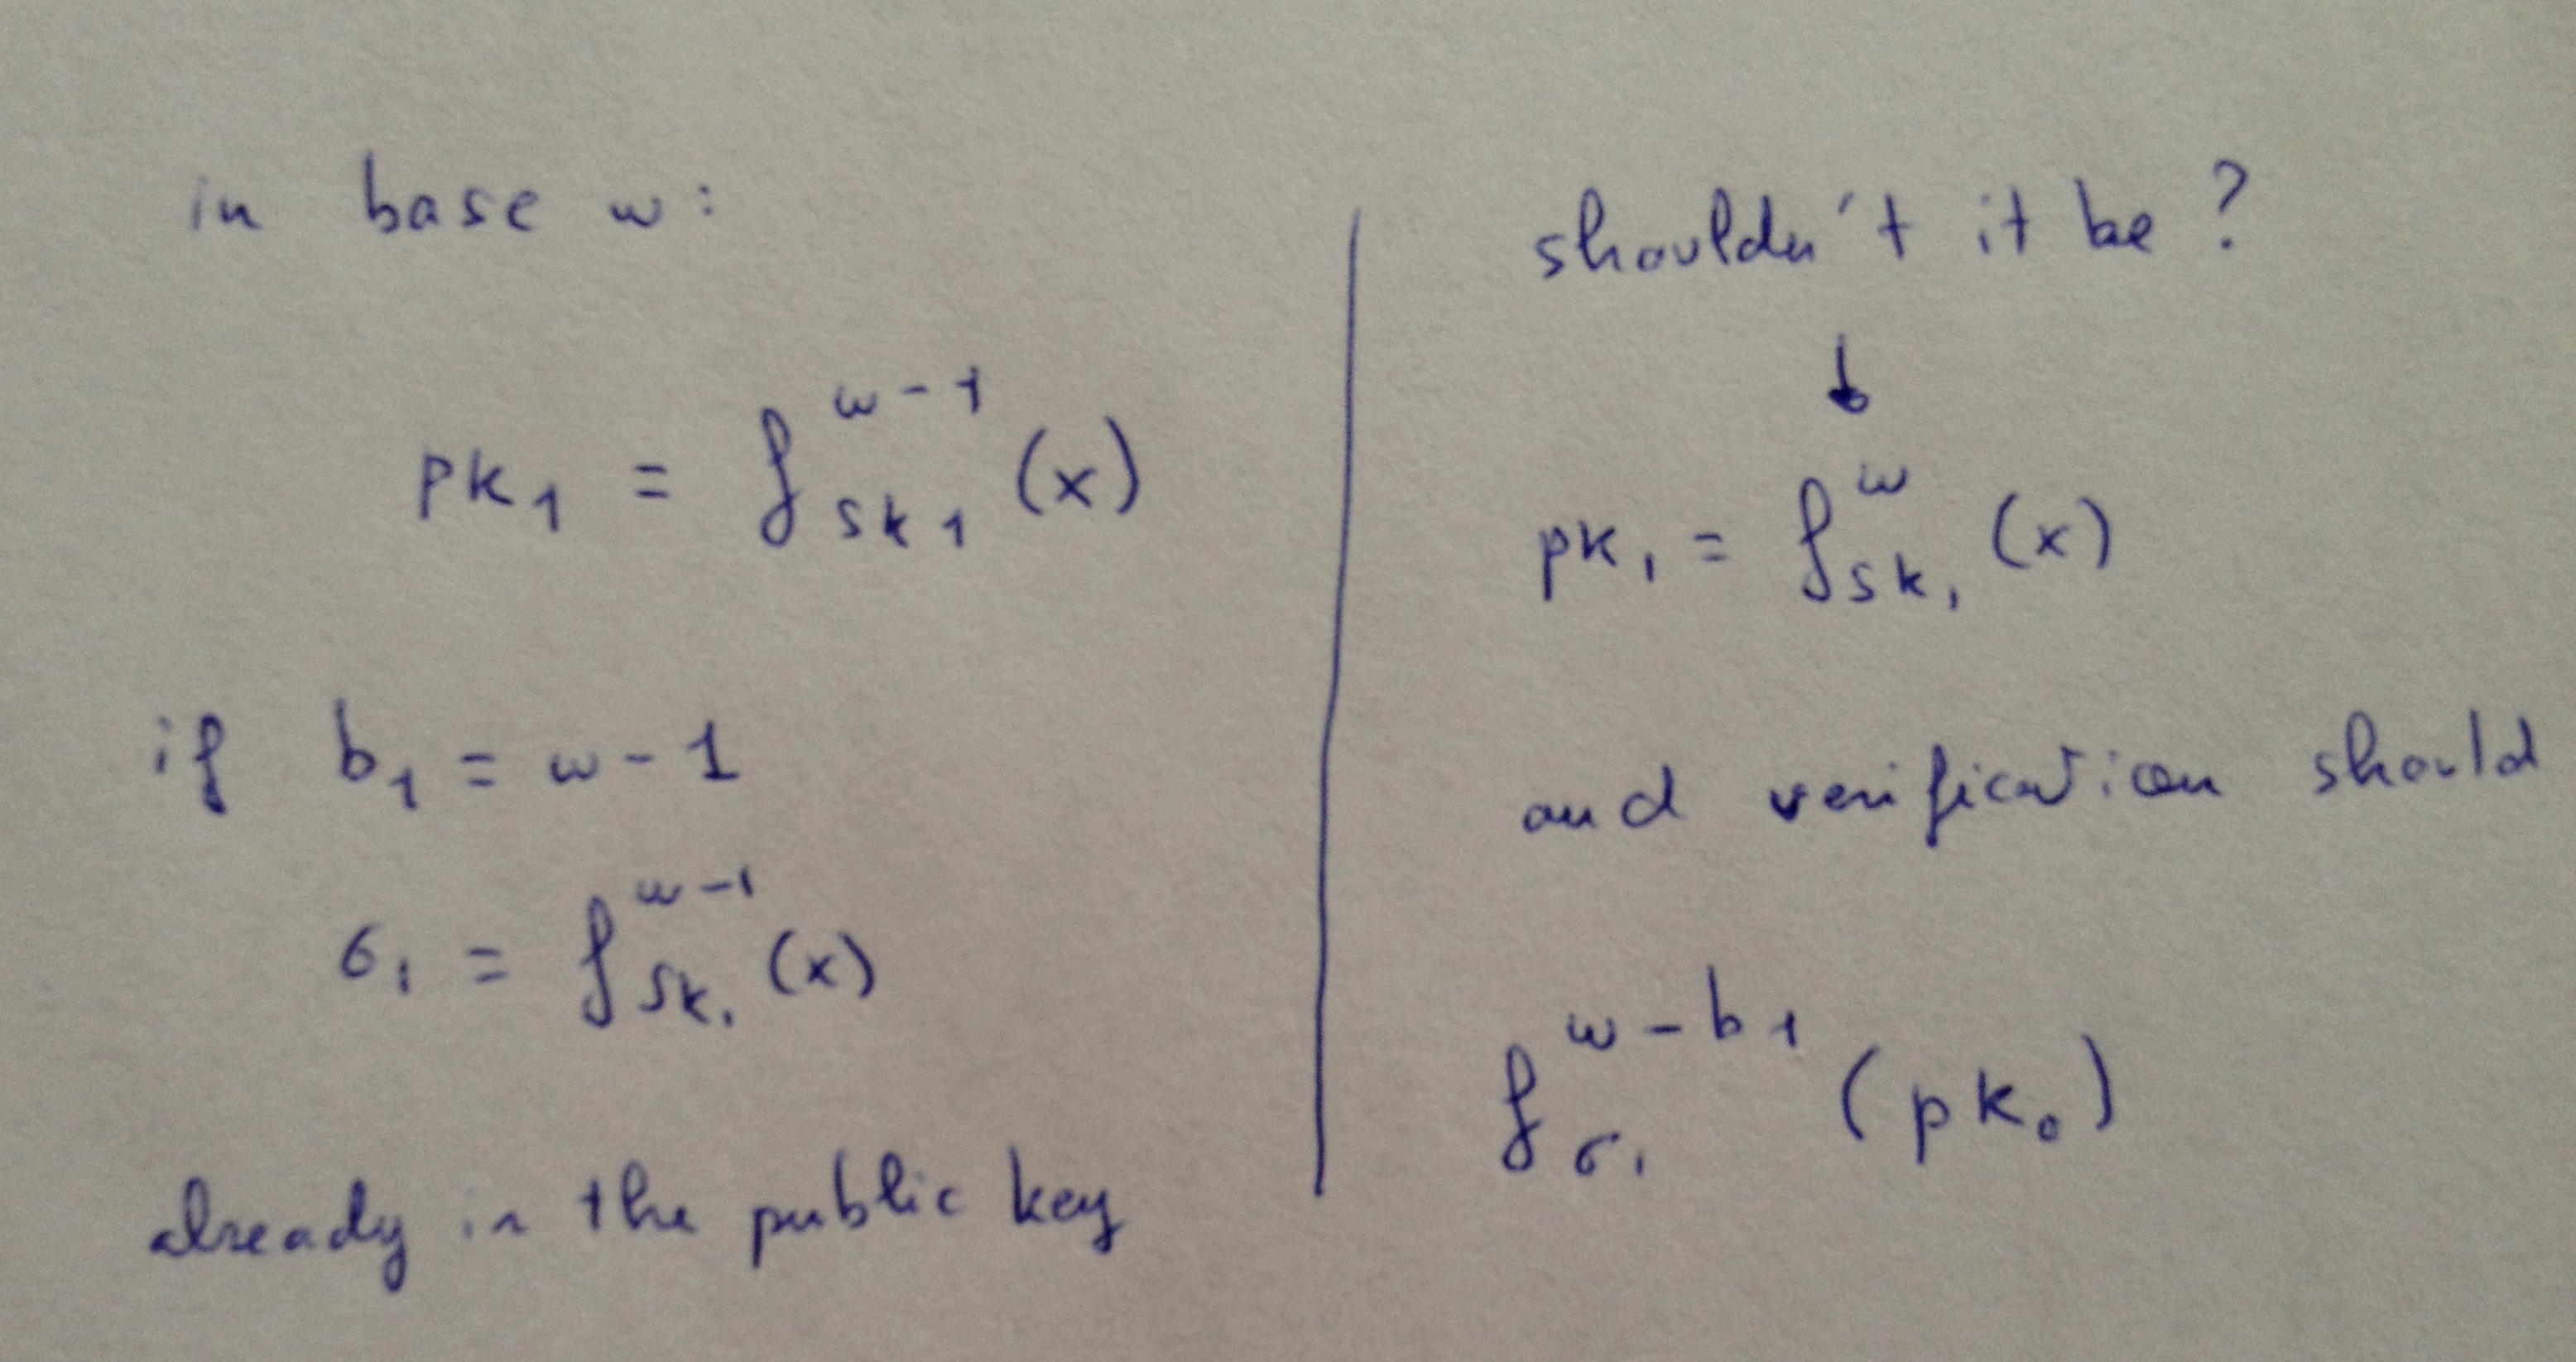 in base w:
pk₁ = f^{w-1}_{sk₁}(x)
if b₁ = w-1
σ₁ = f^{w-1}_{sk₁}(x)
already in the public key
shouldn't it be?
↓
pk₁ = f^{w}_{sk₁}(x)
and verification should
f^{w-b₁}_{σ₁}(pk₀)